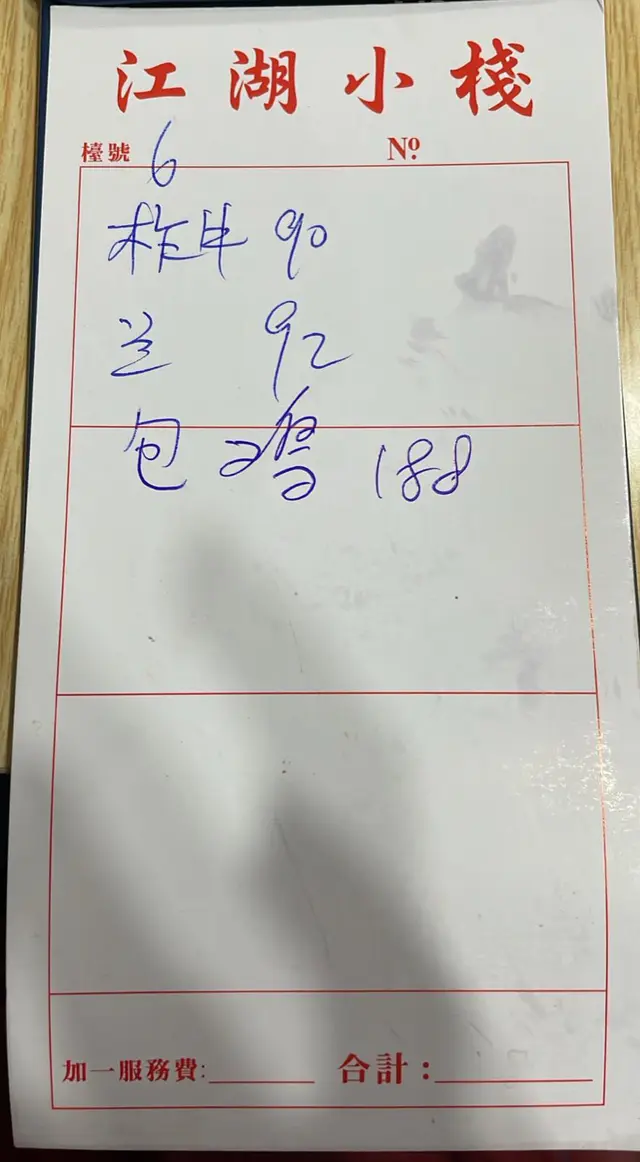 江湖小棧
檯號 6 Nº
柞牛 90
兰 92
包 鸡 188
加一服務費:
合計: